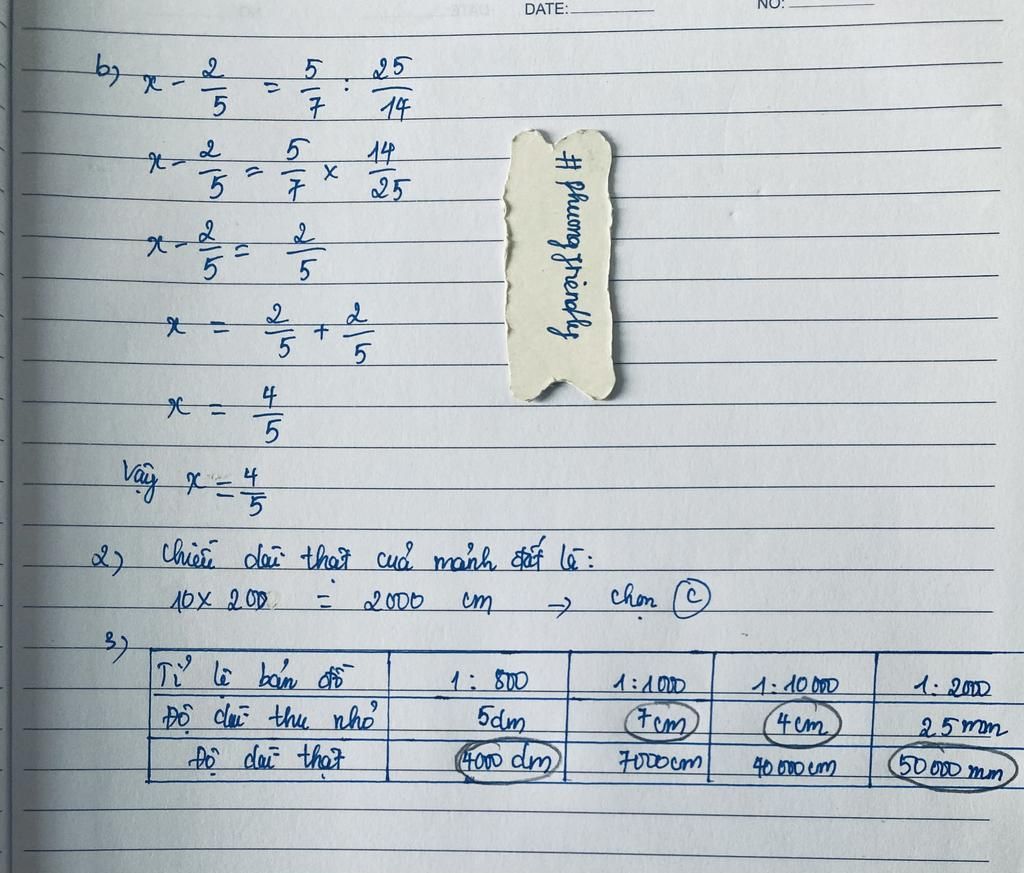 DATE: NO:
b) x - 2/5 = 5/7 : 25/14
x - 2/5 = 5/7 × 14/25
x - 2/5 = 2/5
x = 2/5 + 2/5
x = 4/5
Vậy x = 4/5
# phuongfriendly
2) Chiều dài thật của mảnh đất là:
10 × 200 = 2000 cm → chọn C
3)
Tỉ lệ bản đồ 1 : 800 1 : 1000 1 : 10 000 1 : 2000
Độ dài thu nhỏ 5dm 7cm 4cm 25mm
Độ dài thật 4000 dm 7000cm 40 000cm 50 000 mm